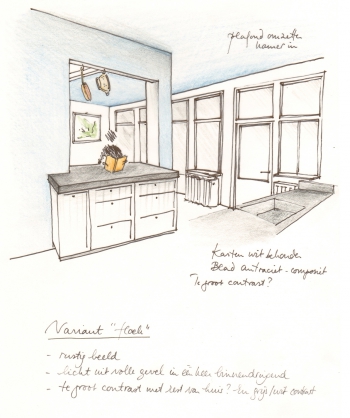 plafond omzetten
kamer in
Kasten wit behouden
Blad antraciet - composiet
Te groot contrast?
Variant "Hoek"
- rustig beeld
- licht uit volle gevel in één keer binnendringend
- te groot contrast met rest van huis? - En grijs/wit contrast